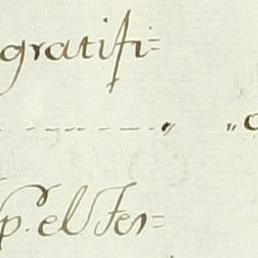 gratifi=
- - - - - - - - „ „ c
p. el Fer=